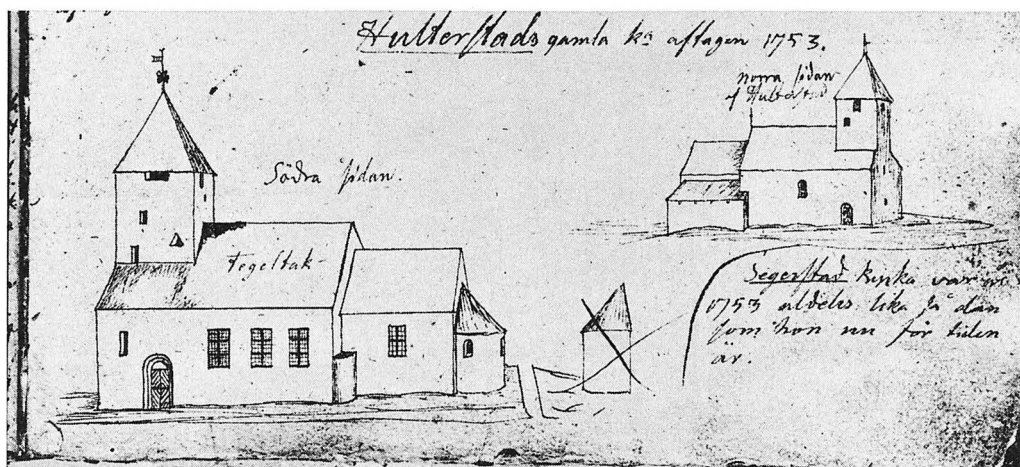 Hulterstads gamla ka aftagen 1753.
norra sidan
af Hulterstad
Södra sidan.
Tegeltak
Segerstad kyrka var
1753 aldeles lika så dan
som hon nu för tiden
är.